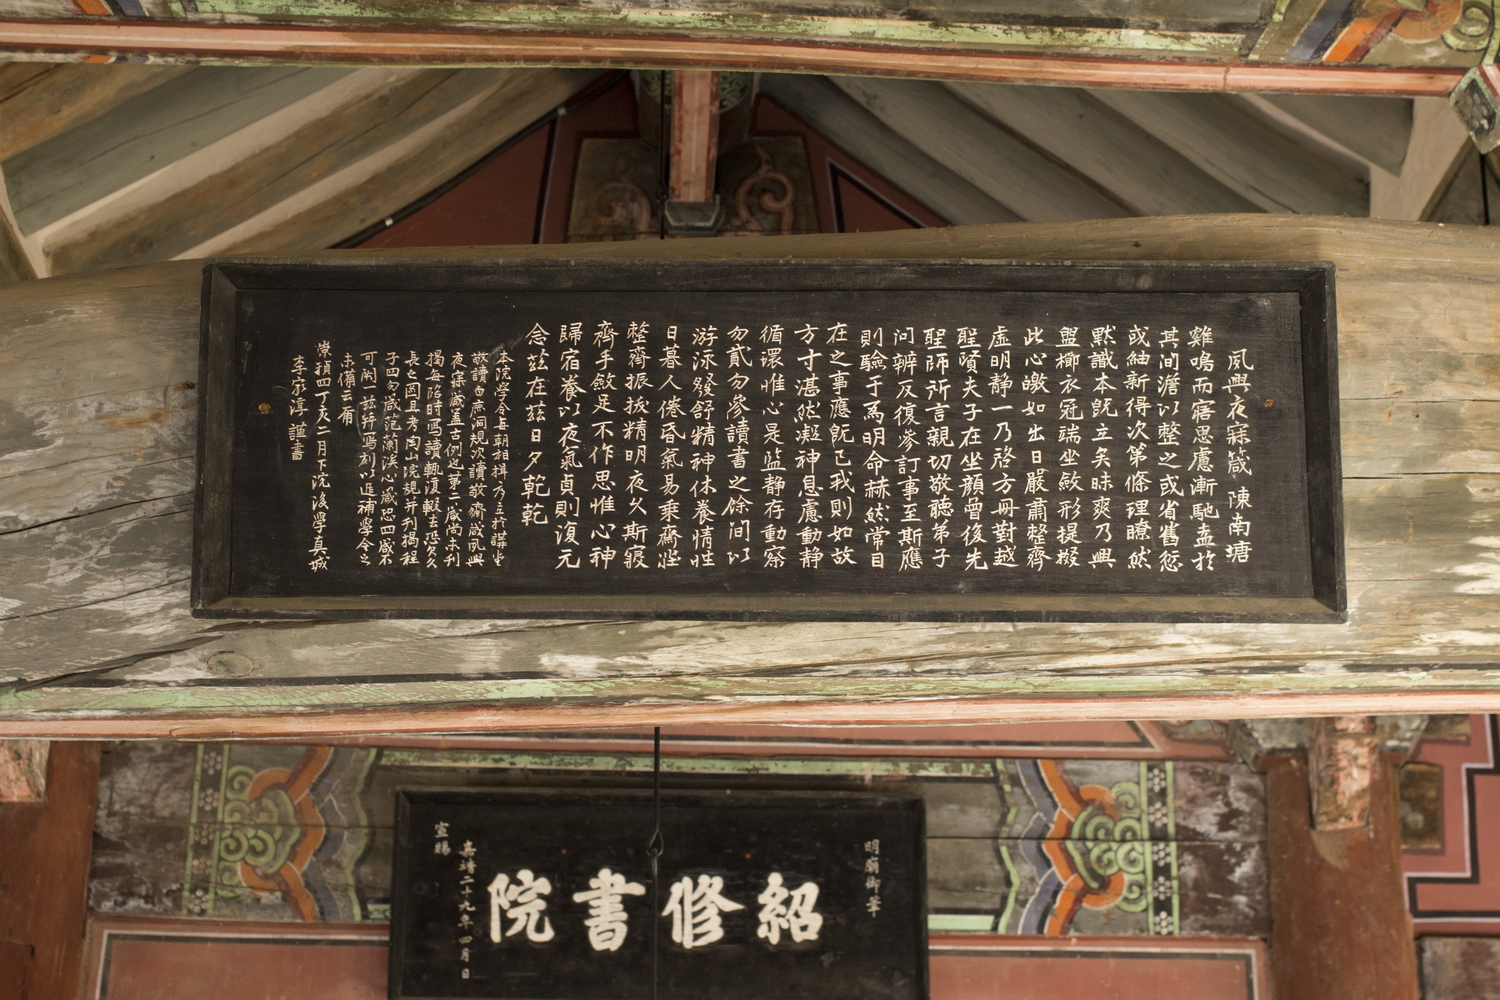 夙興夜寐箴 陳南塘
雞鳴而寤思慮漸馳盍於
其間澹以整之或省舊愆
或紬新得次第條理瞭然
默識本旣立矣昧爽乃興
盥櫛衣冠端坐斂形提掇
此心皦如出日嚴肅整齊
虛明静一乃啓方冊對越
聖賢夫子在坐顔曾後先
聖師所言親切敬聽弟子
问辨反復參訂事至斯應
則驗于爲明命赫然常目
在之事應旣已我則如故
方寸湛然凝神息慮動静
循環惟心是监静存動察
勿貳勿參讀書之餘间以
游泳發舒精神休養情性
日暮人倦昏氣易乘齋莊
整齊振拔精明夜久斯寢
齊手斂足不作思惟心神
歸宿養以夜氣貞則復元
念玆在玆日夕乾乾
本院學令每朝相揖乃立於講堂
敬讀白鹿洞規次讀敬齋箴夙興
夜寐箴盖古例也第二箴尚未刋
揭每臨時寫讀輒復輟去恐久久
長之图且考陶山院規并列揭程
子四勿箴范蘭溪心箴恐四箴不
可闕一玆并寫刻以追補學令之
未備云甯
崇禎四丁亥二月下浣後學真城
李家淳 謹書
明廟御筆
紹修書院
嘉靖二十九年四月日
宣賜